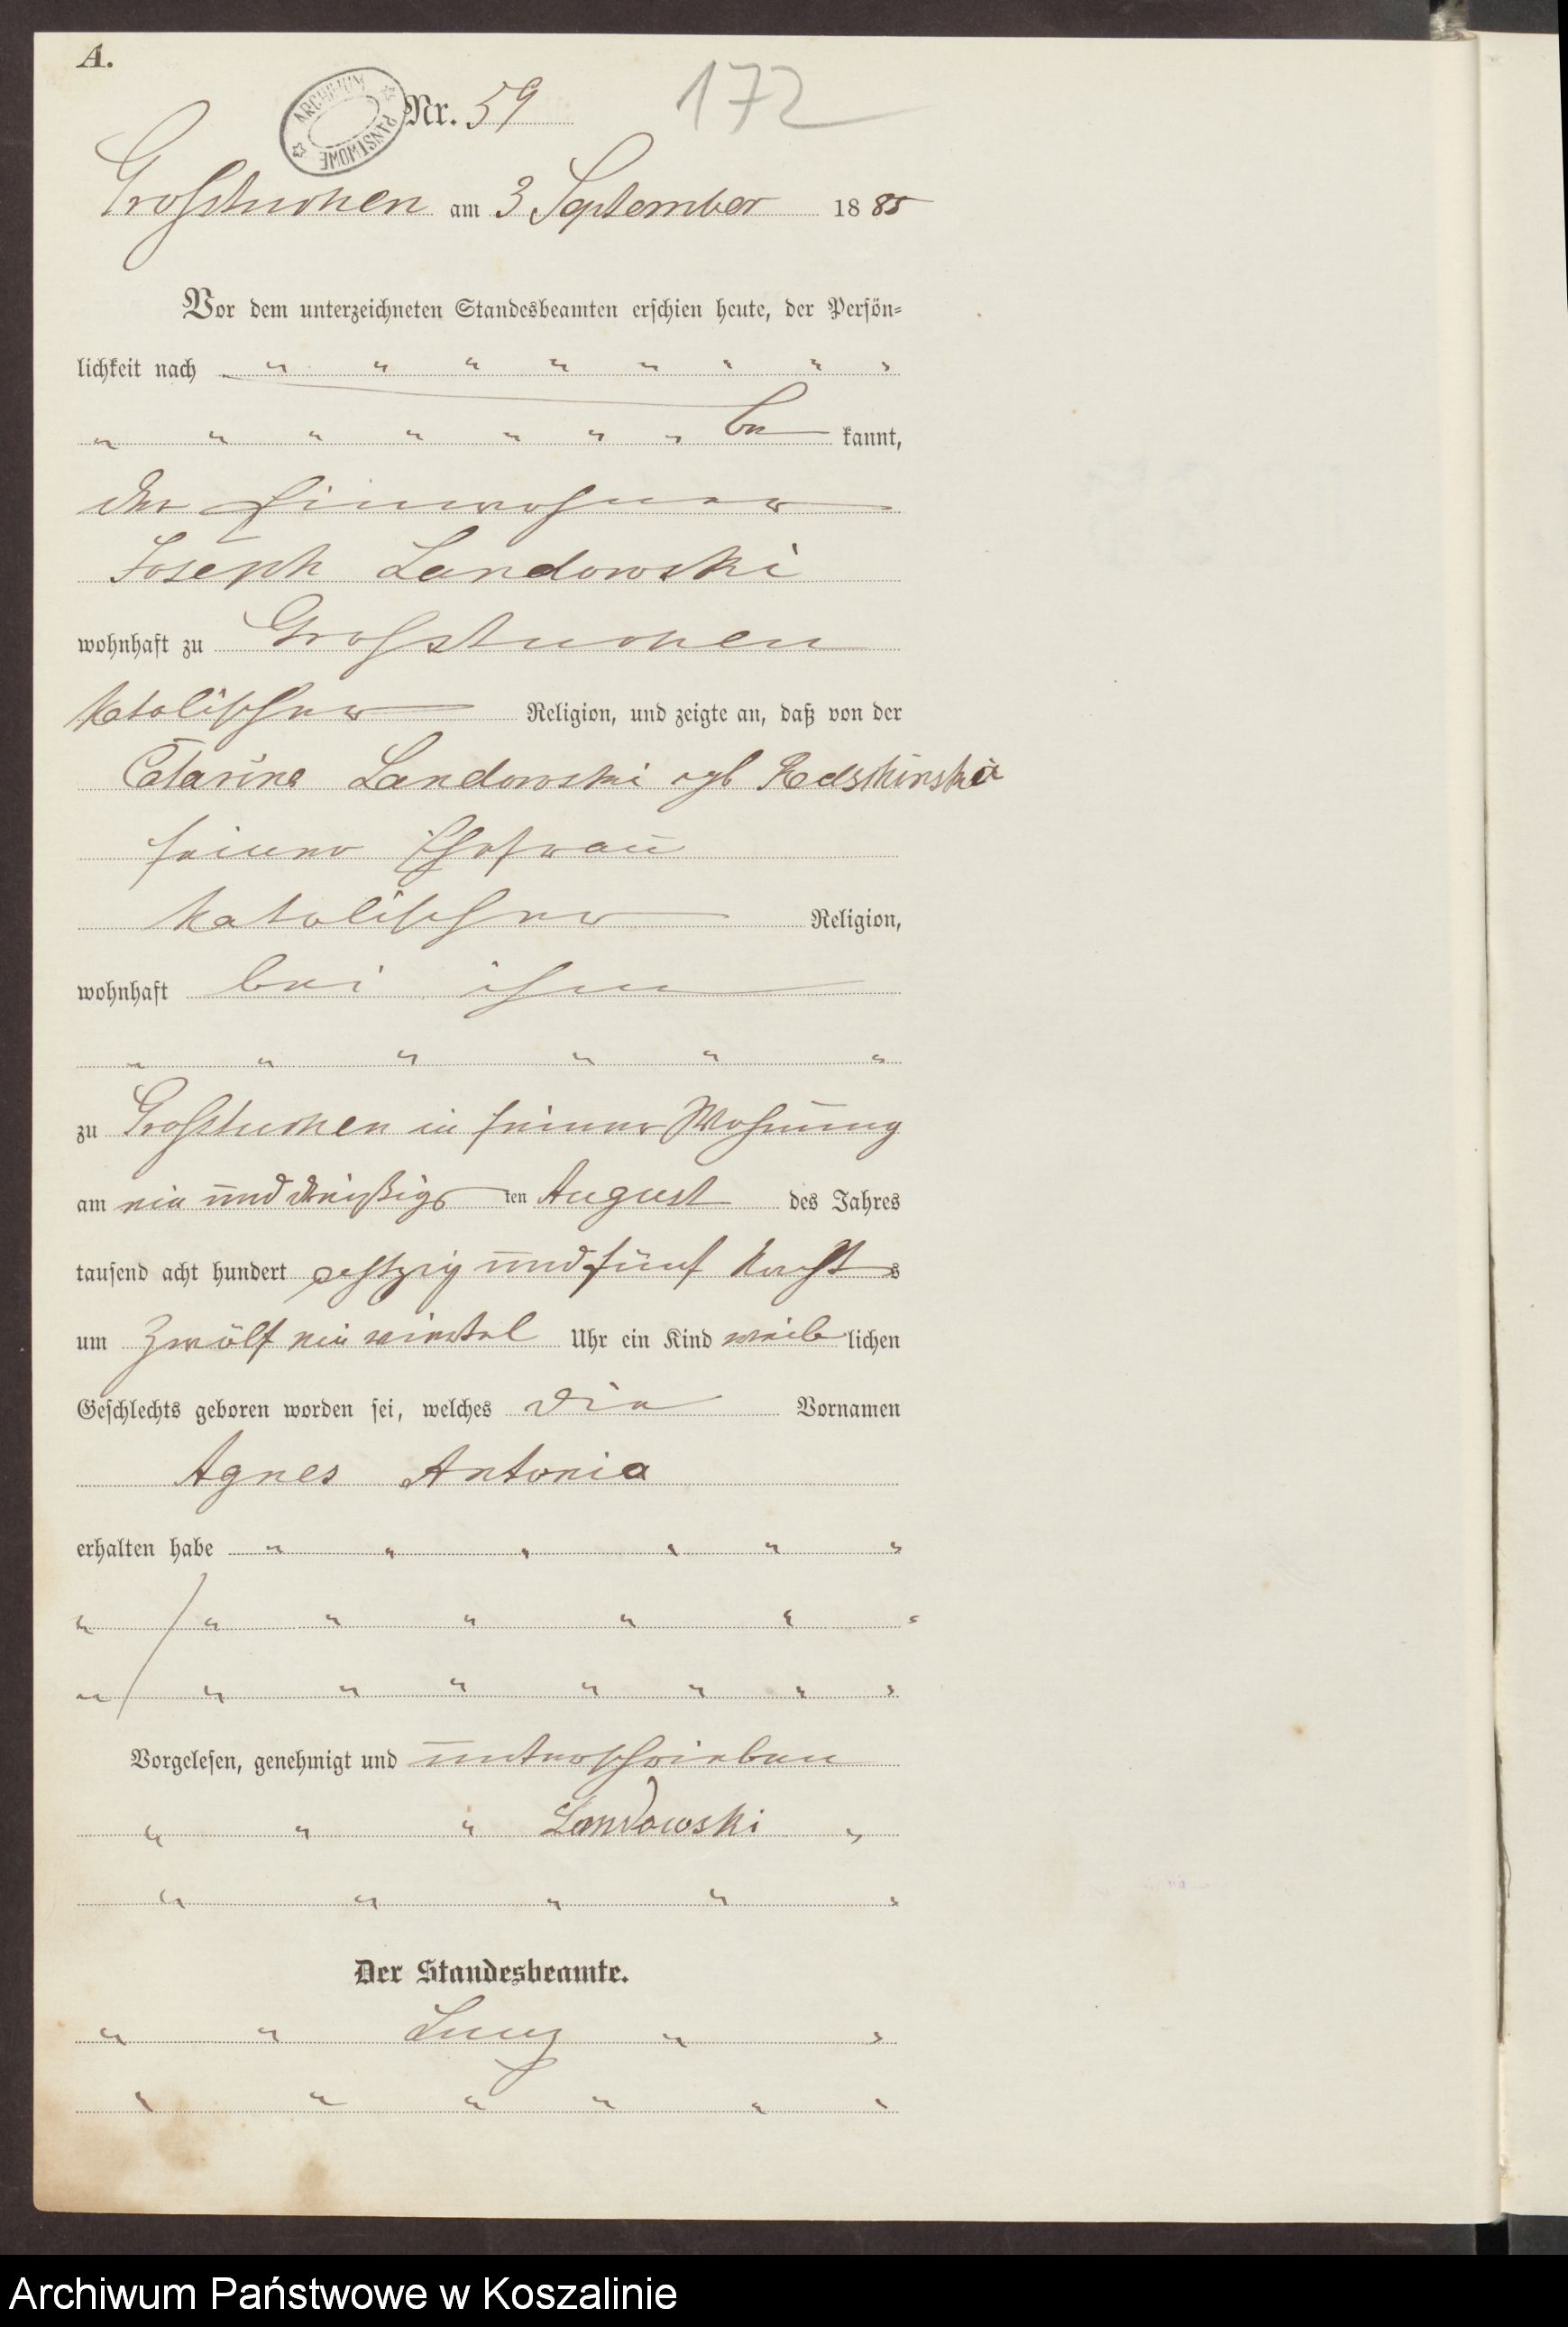 A.
ARCHIWUM PAŃSTWOWE
Nr. 59
172
Großtuchen am 3 September 1885
Vor dem unterzeichneten Standesbeamten erschien heute, der Persön-
lichkeit nach " " " " " " " "
" " " " " " " be kannt,
der Einwohner
Joseph Landowski
wohnhaft zu Großtuchen
katolischer Religion, und zeigte an, daß von der
Catarina Landowski geb
seiner Ehefrau
katolischer Religion,
wohnhaft bei ihm
" " " " " "
zu Großtuchen in seiner Wohnung
am ein und dreißigs ten August des Jahres
tausend acht hundert achtzig und fünf Nachts
um Zwölf ein viertel Uhr ein Kind weib lichen
Geschlechts geboren worden sei, welches die Vornamen
Agnes Antonia
erhalten habe " " " " " "
" " " " " " "
" " " " " " " "
Vorgelesen, genehmigt und unterschrieben
" " " Landowski "
" " " " "
Der Standesbeamte.
" " " "
" " " " " "
Archiwum Państwowe w Koszalinie